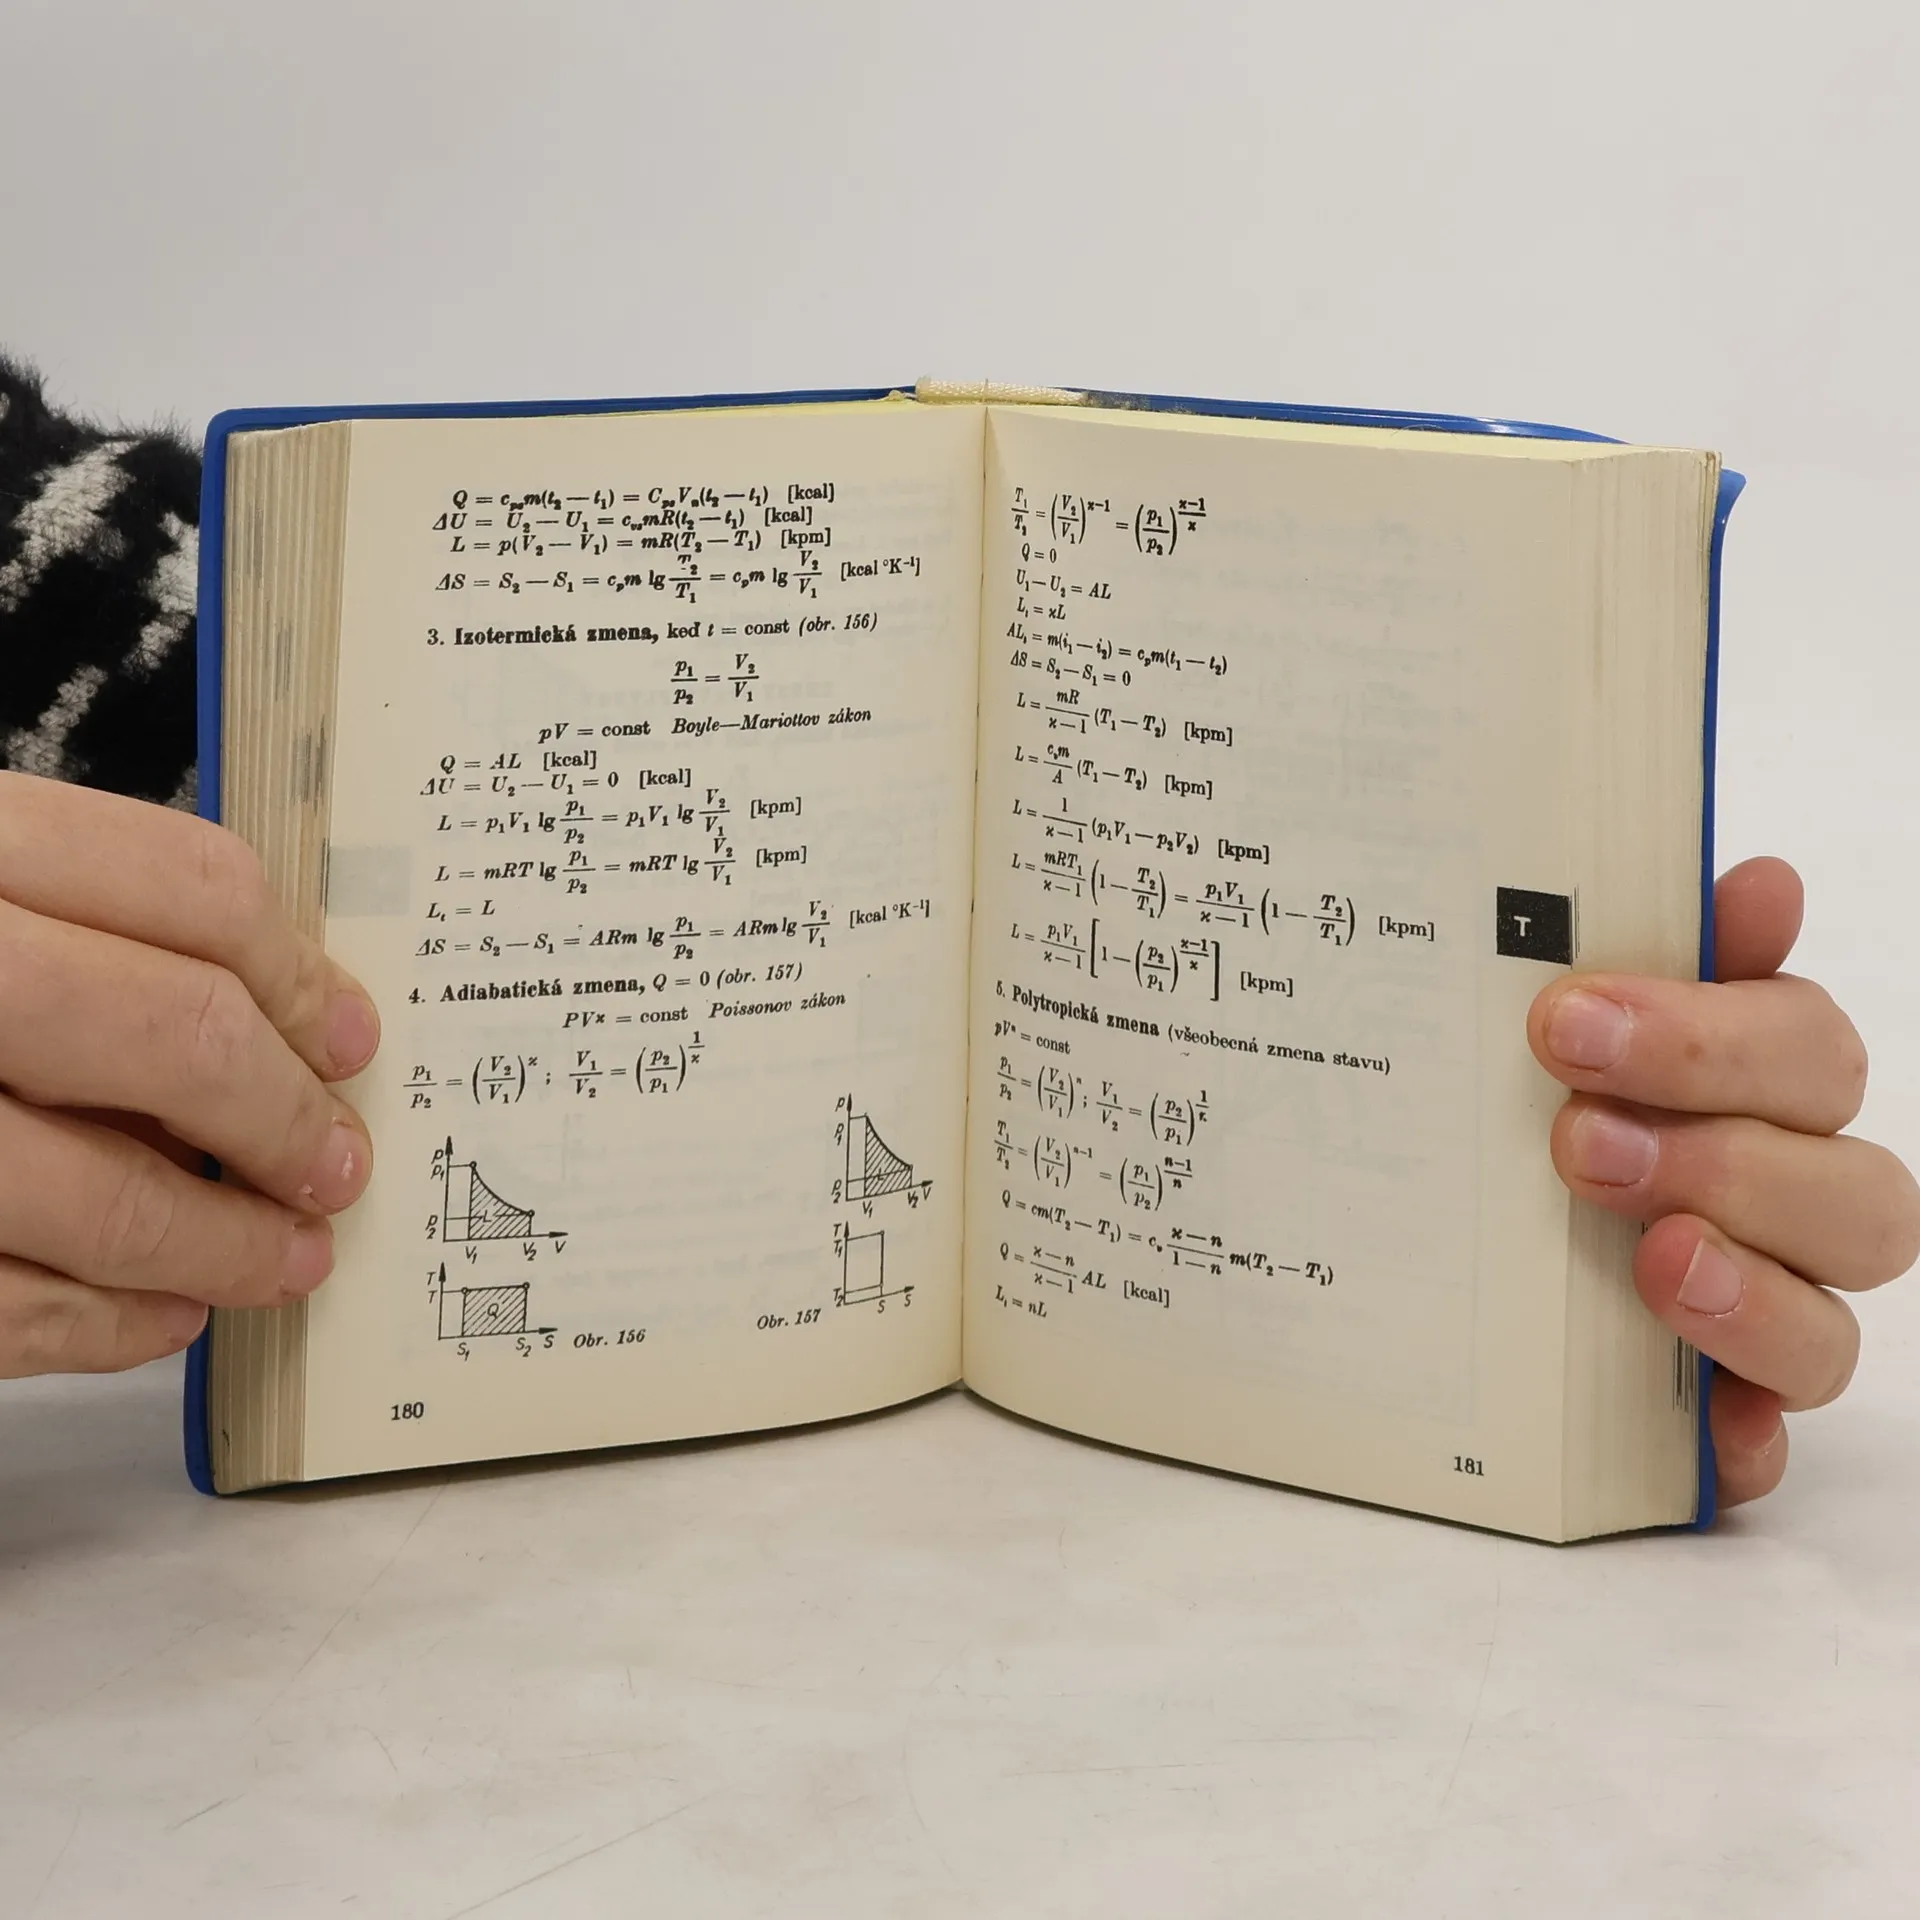 Q = c_ps m(t₂ — t₁) = C_ps V_n(t₂ — t₁) [kcal]
ΔU = U₂ — U₁ = c_vs mR(t₂ — t₁) [kcal]
L = p(V₂ — V₁) = mR(T₂ — T₁) [kpm]
ΔS = S₂ — S₁ = c_p m lg T₂/T₁ = c_p m lg V₂/V₁ [kcal °K⁻¹]
3. Izotermická zmena, keď t = const (obr. 156)
p₁/p₂ = V₂/V₁
pV = const Boyle—Mariottov zákon
Q = AL [kcal]
ΔU = U₂ — U₁ = 0 [kcal]
L = p₁V₁ lg p₁/p₂ = p₁V₁ lg V₂/V₁ [kpm]
L = mRT lg p₁/p₂ = mRT lg V₂/V₁ [kpm]
L_t = L
ΔS = S₂ — S₁ = ARm lg p₁/p₂ = ARm lg V₂/V₁ [kcal °K⁻¹]
4. Adiabatická zmena, Q = 0 (obr. 157)
PVϰ = const Poissonov zákon
p₁/p₂ = (V₂/V₁)^ϰ ; V₁/V₂ = (p₂/p₁)^(1/ϰ)
p
p₁
p₂
L
V₁ V₂ V
T
T
Q
S₁ S₂ S
Obr. 156
p
p₁
p₂
L
V₁ V₂ V
T
T₁
T₂
S S
Obr. 157
180
T₁/T₂ = (V₂/V₁)^(ϰ—1) = (p₁/p₂)^((ϰ—1)/ϰ)
Q = 0
U₁ — U₂ = AL
L_t = ϰL
AL_t = m(i₁ — i₂) = c_p m(t₁ — t₂)
ΔS = S₂ — S₁ = 0
L = mR/(ϰ — 1) (T₁ — T₂) [kpm]
L = c_v m/A (T₁ — T₂) [kpm]
L = 1/(ϰ — 1) (p₁V₁ — p₂V₂) [kpm]
L = mRT₁/(ϰ — 1) (1 — T₂/T₁) = p₁V₁/(ϰ — 1) (1 — T₂/T₁) [kpm]
L = p₁V₁/(ϰ — 1) [1 — (p₂/p₁)^((ϰ—1)/ϰ)] [kpm]
T
5. Polytropická zmena (všeobecná zmena stavu)
pVⁿ = const
p₁/p₂ = (V₂/V₁)ⁿ ; V₁/V₂ = (p₂/p₁)^(1/n)
T₁/T₂ = (V₂/V₁)^(n—1) = (p₁/p₂)^((n—1)/n)
Q = cm(T₂ — T₁) = c_v (ϰ — n)/(1 — n) m(T₂ — T₁)
Q = (ϰ — n)/(ϰ — 1) AL [kcal]
L_t = nL
181